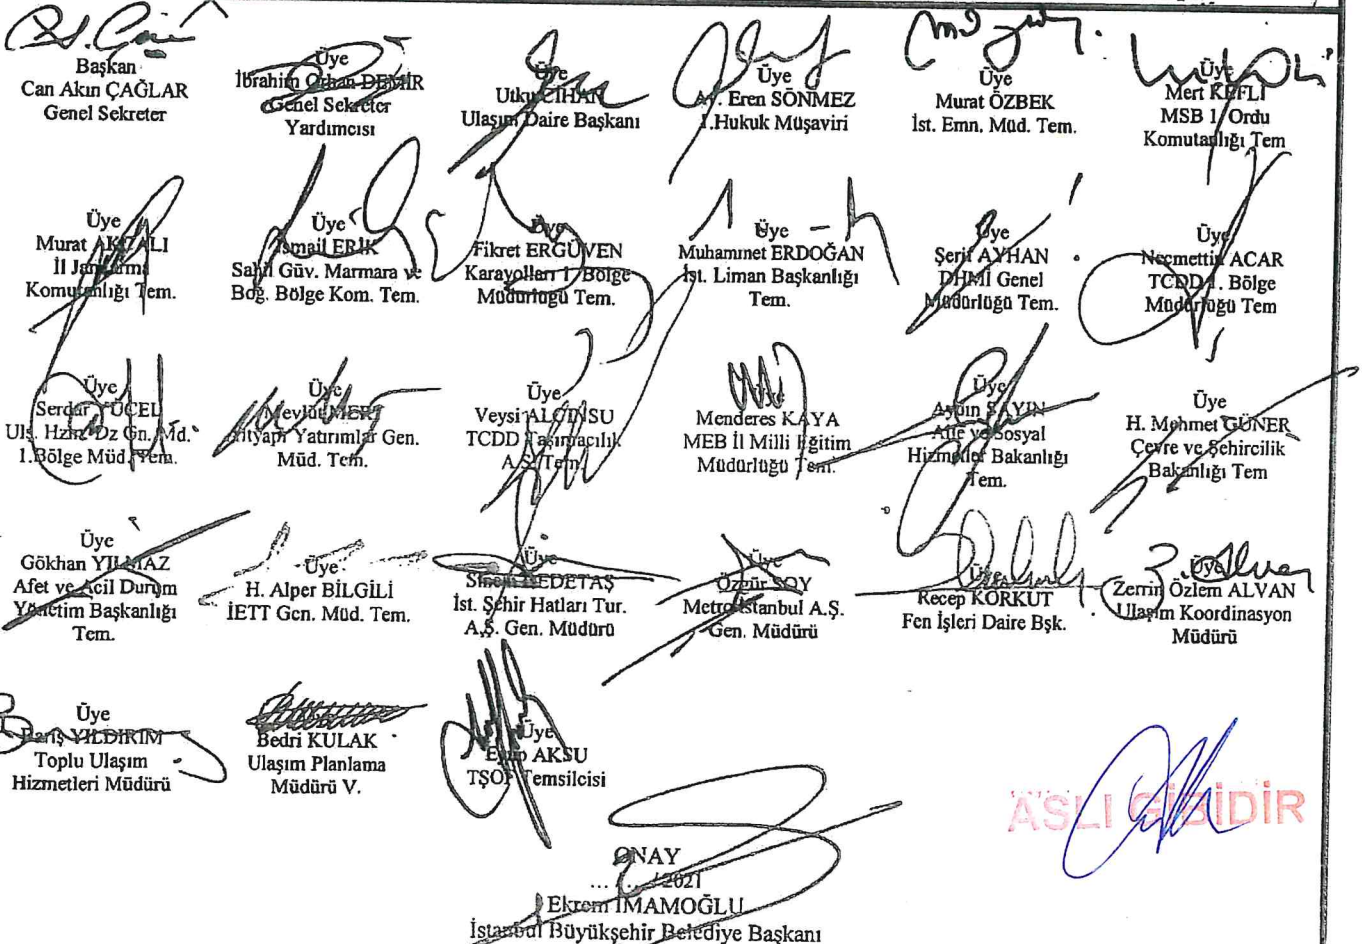 Başkan
Can Akın ÇAĞLAR
Genel Sekreter
Üye
İbrahim Orhan DEMİR
Genel Sekreter
Yardımcısı
Üye
Utku CİHAN
Ulaşım Daire Başkanı
Üye
Av. Eren SÖNMEZ
1.Hukuk Müşaviri
Üye
Murat ÖZBEK
İst. Emn. Müd. Tem.
Üye
Mert KEFLİ
MSB 1. Ordu
Komutanlığı Tem
Üye
Murat
İl Jandarma
Komutanlığı Tem.
Üye
İsmail ERİK
Sahil Güv. Marmara ve
Boğ. Bölge Kom. Tem.
Üye
Fikret ERGÜVEN
Karayolları 17. Bölge
Müdürlüğü Tem.
Üye
Muhammet ERDOĞAN
İst. Liman Başkanlığı
Tem.
Üye
Şerif AYHAN
DHMİ Genel
Müdürlüğü Tem.
Üye
Necmettin ACAR
TCDD 1. Bölge
Müdürlüğü Tem
Üye
Serdar YÜCEL
Ulş. Hzm. Dz Gn. Md.
1.Bölge Müd. Tem.
Üye
Mevlüt MERT
Altyapı Yatırımlar Gen.
Müd. Tem.
Üye
Veysi ALÇINSU
TCDD Taşımacılık
A.Ş. Tem.
Üye
Menderes KAYA
MEB İl Milli Eğitim
Müdürlüğü Tem.
Üye
Aydın SAYIN
Aile ve Sosyal
Hizmetler Bakanlığı
Tem.
Üye
H. Mehmet GÜNER
Çevre ve Şehircilik
Bakanlığı Tem
Üye
Gökhan YILMAZ
Afet ve Acil Durum
Yönetim Başkanlığı
Tem.
Üye
H. Alper BİLGİLİ
İETT Gen. Müd. Tem.
Üye
Sinem DEDETAŞ
İst. Şehir Hatları Tur.
A.Ş. Gen. Müdürü
Üye
Özgür SOY
Metro İstanbul A.Ş.
Gen. Müdürü
Üye
Recep KORKUT
Fen İşleri Daire Bşk.
Üye
Zerrin Özlem ALVAN
Ulaşım Koordinasyon
Müdürü
Üye
Barış YILDIRIM
Toplu Ulaşım
Hizmetleri Müdürü
Bedri KULAK
Ulaşım Planlama
Müdürü V.
Üye
Eyüp AKSU
TŞOF Temsilcisi
ASLI GİBİDİR
ONAY
... / ... / 2021
Ekrem İMAMOĞLU
İstanbul Büyükşehir Belediye Başkanı